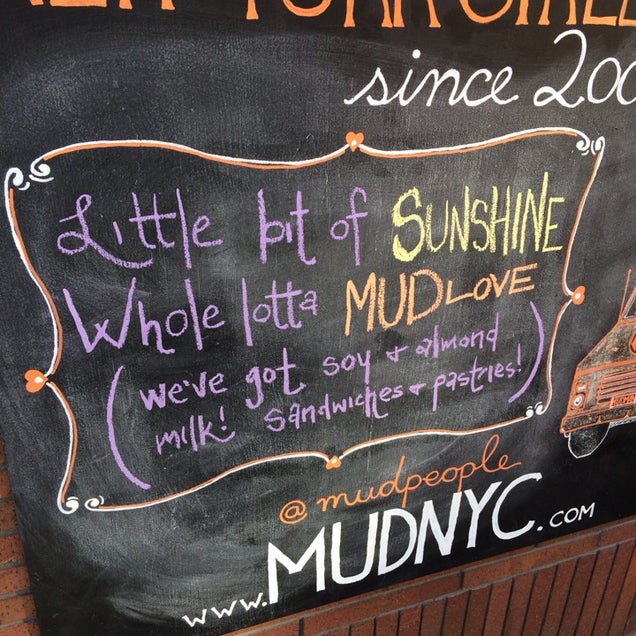 since 200
Little bit of SUNSHINE
Whole lotta MUDLOVE
(we've got soy + almond
milk! sandwiches + pastries!)
@mudpeople
www.MUDNYC.COM